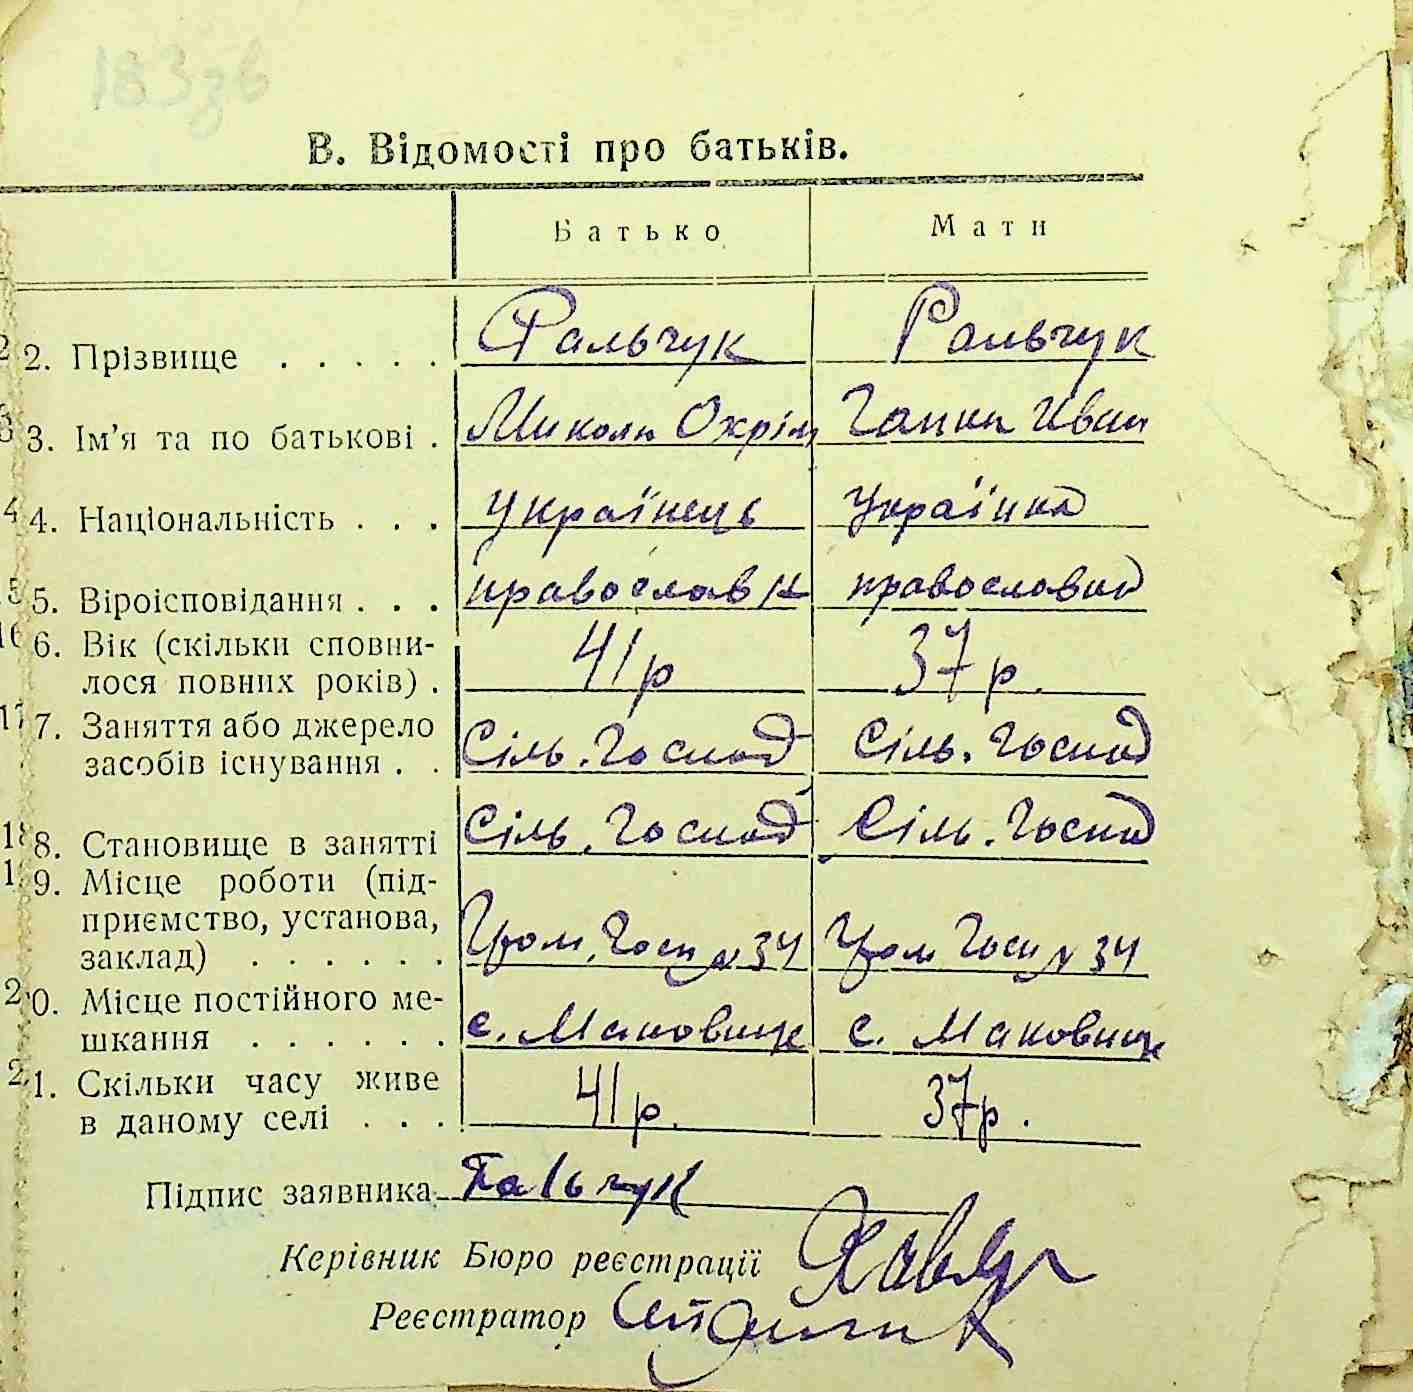 183зв
В. Відомості про батьків.
Батько Мати
2 2. Прізвище . . . . . Фальчук Фальчук
3 3. Ім'я та по батькові . Микола Охрім Ганна Иван
4 4. Національність . . . Українець Українка
5 5. Віроісповідання . . . православн православна
16 6. Вік (скільки сповни-
лося повних років) . 41р 37р.
17 7. Заняття або джерело
засобів існування . . Сіль. Господ Сіль. Господ
18 8. Становище в занятті Сіль. Господ Сіль. Господ
1 9. Місце роботи (під-
приємство, установа,
заклад) . . . . . . Гром. Госп N 34 Гром Госп N 34
2 0. Місце постійного ме-
шкання . . . . . . с. Маковище с. Маковище
2 1. Скільки часу живе
в даному селі . . . 41р. 37р.
Підпис заявника Фальчук
Керівник Бюро реєстрації
Реєстратор